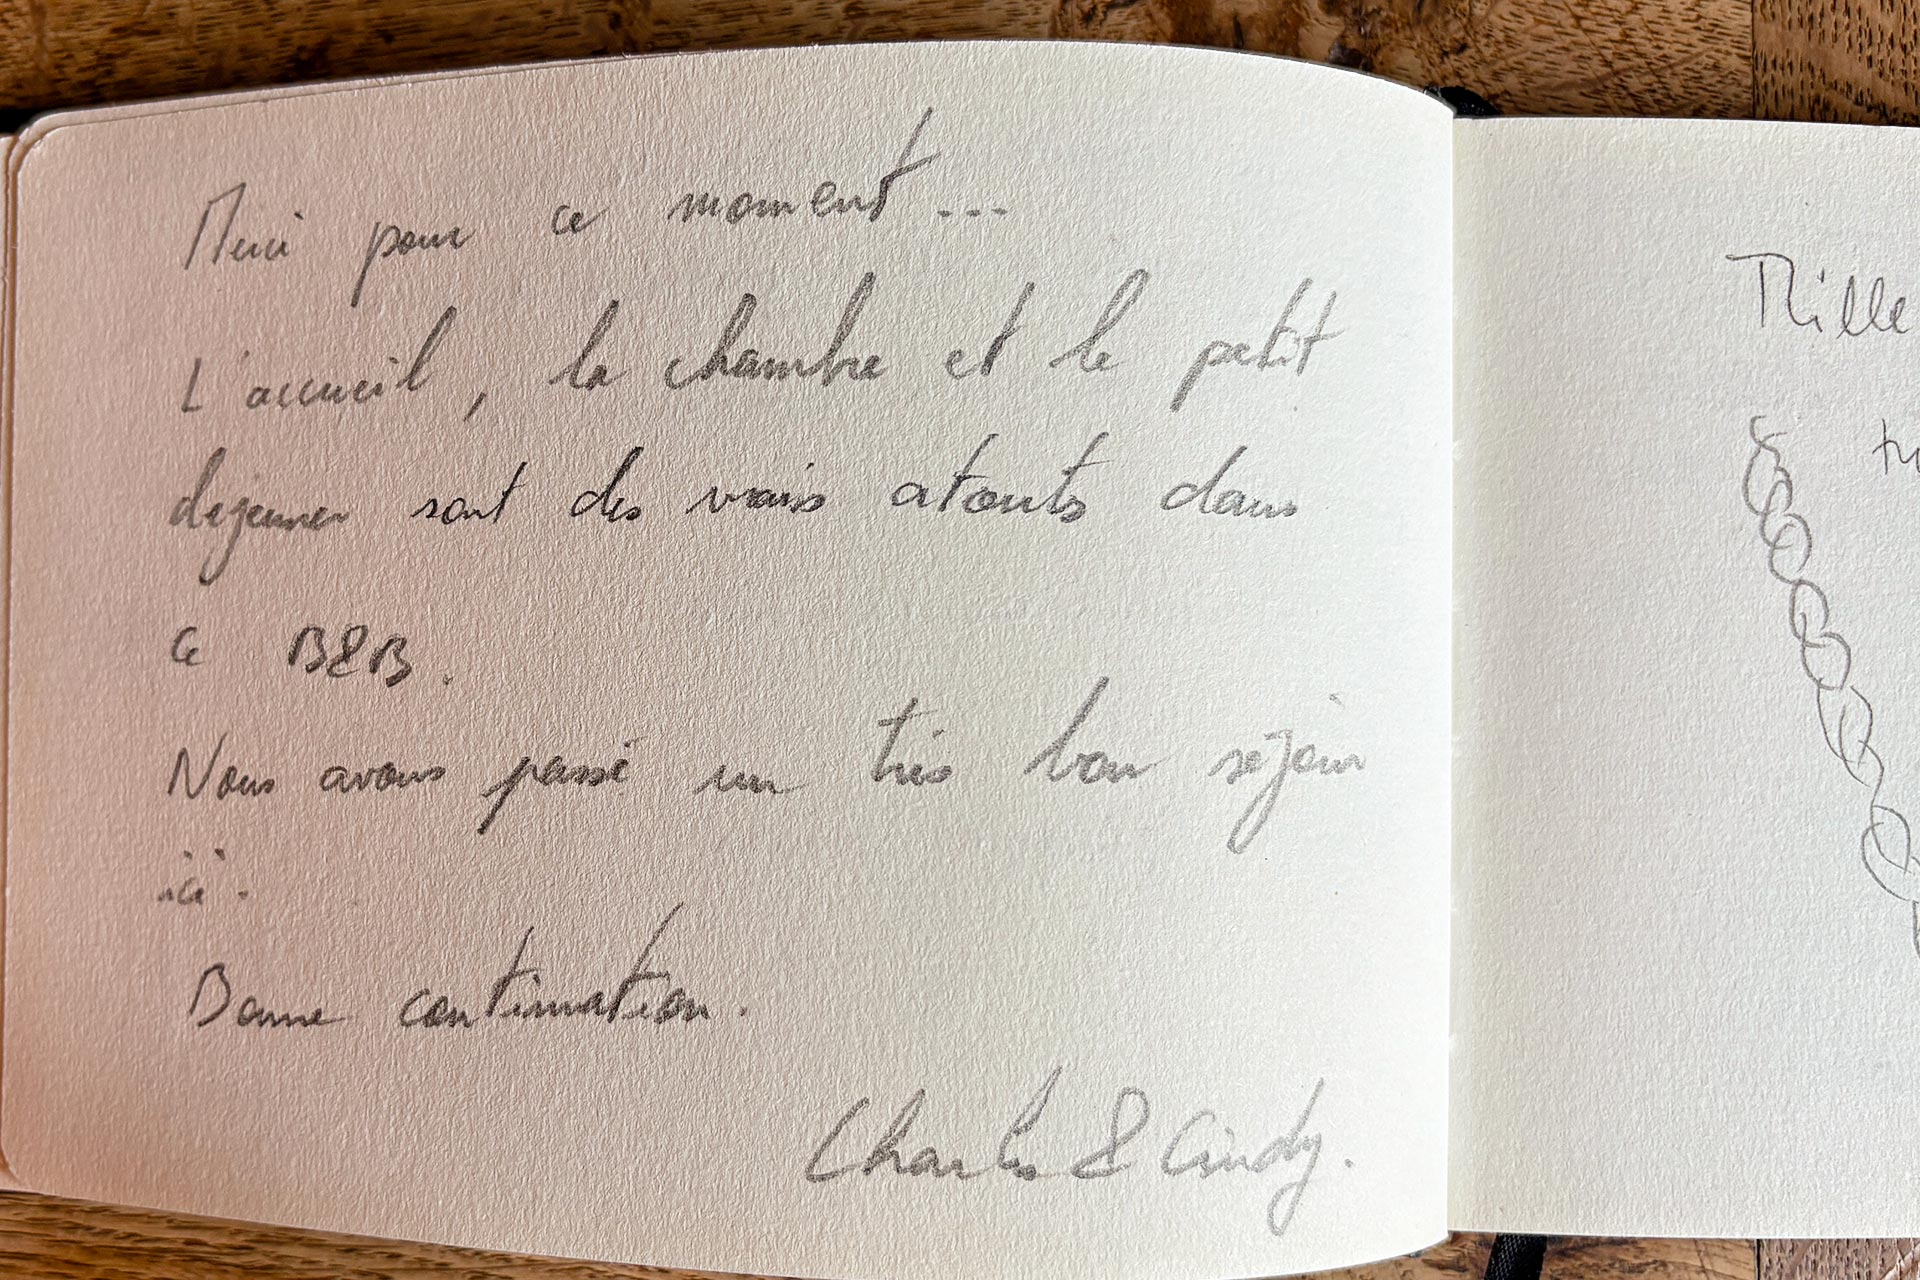 Merci pour ce moment...
L'accueil, la chambre et le petit
dejeuner sont des vrais atouts dans
ce B&B.
Nous avons passé un très bon séjour
ici.
Bonne continuation.
Charles & Cindy.
Mille